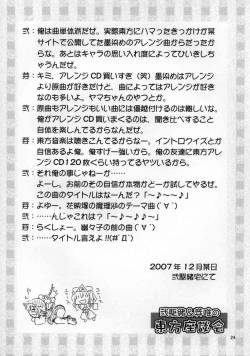 弐：俺は曲単体派だぜ。実際東方にハマったきっかけが某
サイトで公開してた墨染めのアレンジ曲からだったか
らな。あとはキャラの思い入れ度によってひいきしち
ゃうんだぜ。
葬：キミ、アレンジCD買いすぎ（笑）墨染めはアレンジ
より原曲が好きだけど、曲によってはアレンジが好き
なのも多いよ。ヤマちゃんのやつとか。
弐：原曲もアレンジもいい曲には優越付けるのは難しいな。
葬：俺がアレンジCD買いまくるのは、聞き比べすること
自体を楽しんでるからなんだぜ。
葬：東方音楽は聴きこんでるからなー。イントロクイズとか
自信があるよ俺。俺すげー強いから。俺の友達に東方アレ
ンジCD120枚くらい持ってるヤツいるから。
弐：それ俺の事じゃねーか……
よーし。お前のその自信が本物かどーか試してやるぜ。
この曲のタイトルはなーんだ？「～♪～～♪」
葬：よゆー。花映塚の魔理沙のテーマ曲（´∀｀）
弐：……んじゃこれは？「～♪～♪～」
葬：らくしょー。幽々子の前の曲（´∀｀）
弐：……タイトル言えよ!!(#ﾟДﾟ)
2007年12月某日
弐駆緒宅にて
東方座談会
29